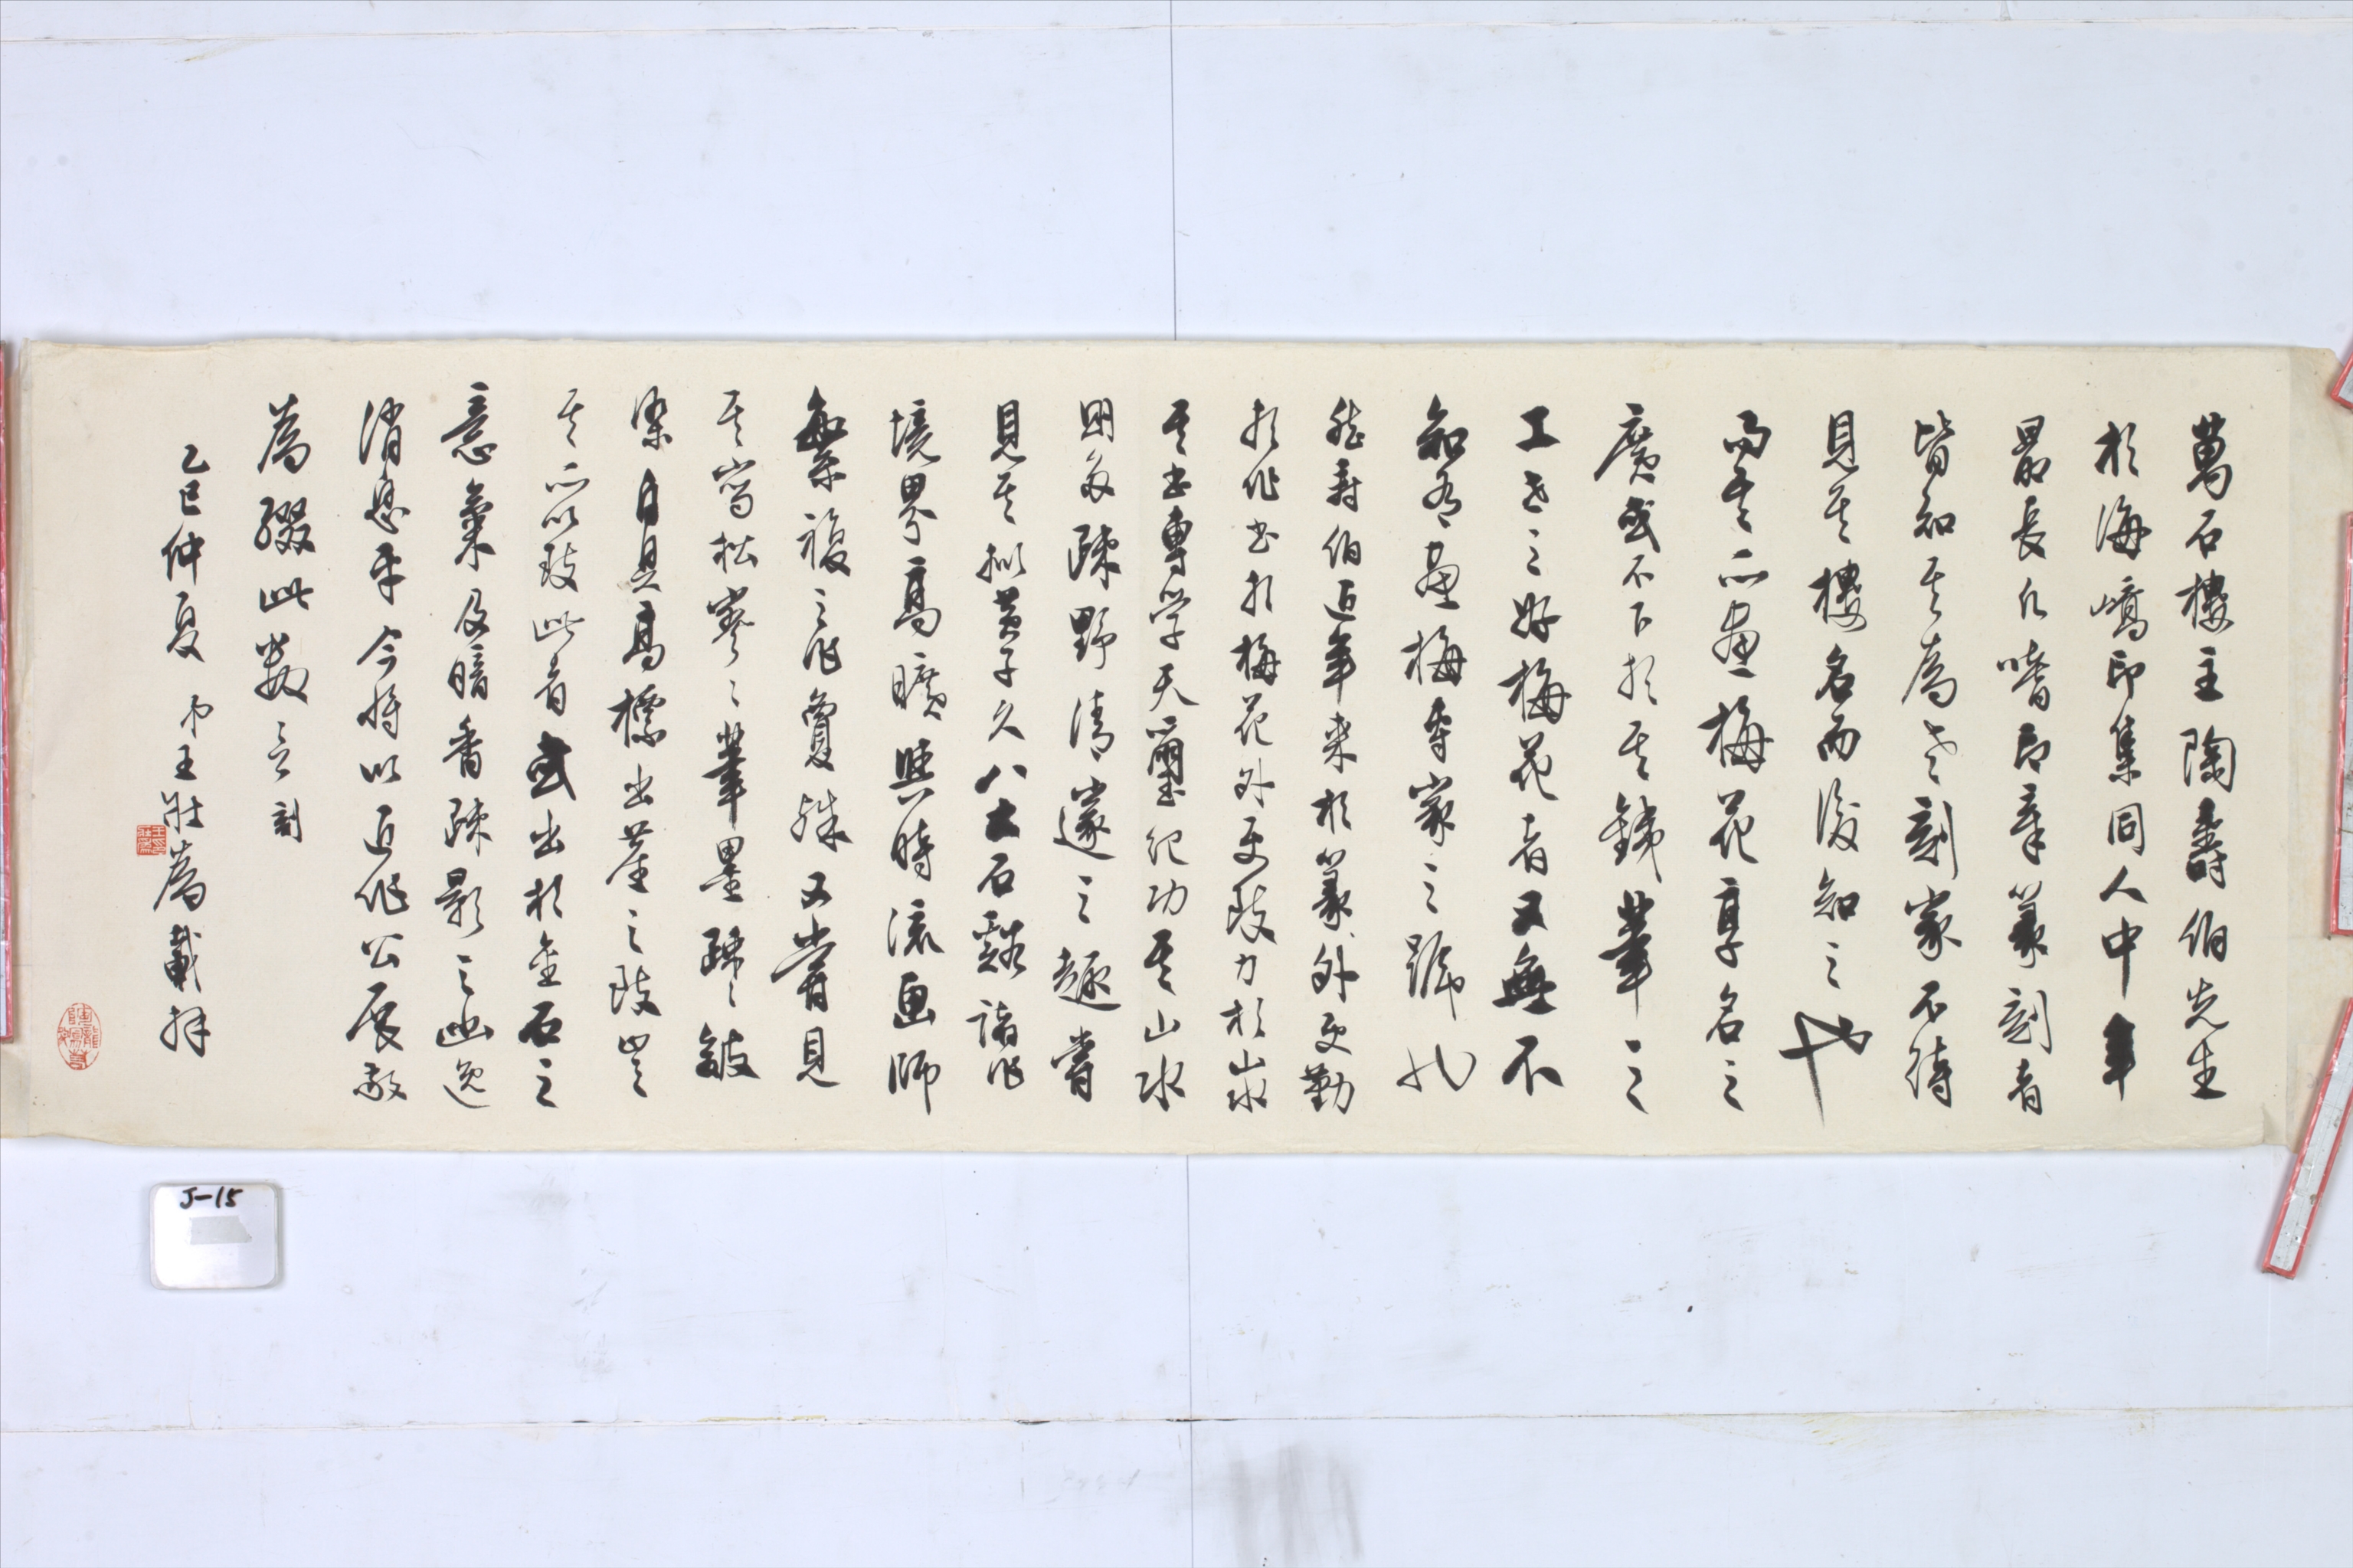 萬石樓主陶壽伯先生
於海嶠印集同人中年
最長凡嗜印章篆刻者
皆知其為老刻家不待
見其樓名而後知之也
而其所畫梅花享名之
廣或不下於其鐵筆之
工世之好梅花者又無不
知有畫梅專家之號也
然壽伯近年來於篆外更勤
於作書於梅花外更致力於山水
其書專學天璽紀功其山水
則多疎野清邃之趣嘗
見其擬黃子久八大石谿諸作
境界高曠與時流畫師
繁複之作敻殊又嘗見
其寫松寥寥筆墨疎疎皴
染自具高標出塵之致豈
其所以致此者或出於金石之
意氣及暗香疎影之幽逸
消息乎今將以近作公展敬
為綴此數言 刻
乙巳仲夏 弟王壯為載拜
J-15